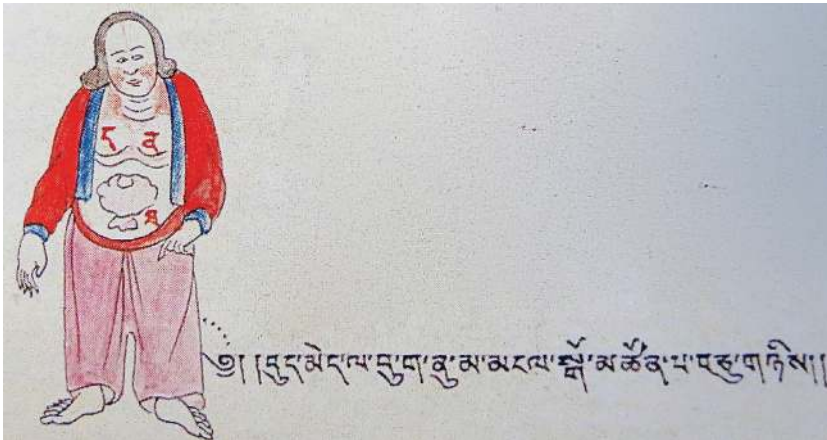 ༡། །བུད་མེད་ལ་བུ་ག་ནུ་མ་མངལ་སྒོ་མཚོན་པ་བཅུ་གཉིས།།